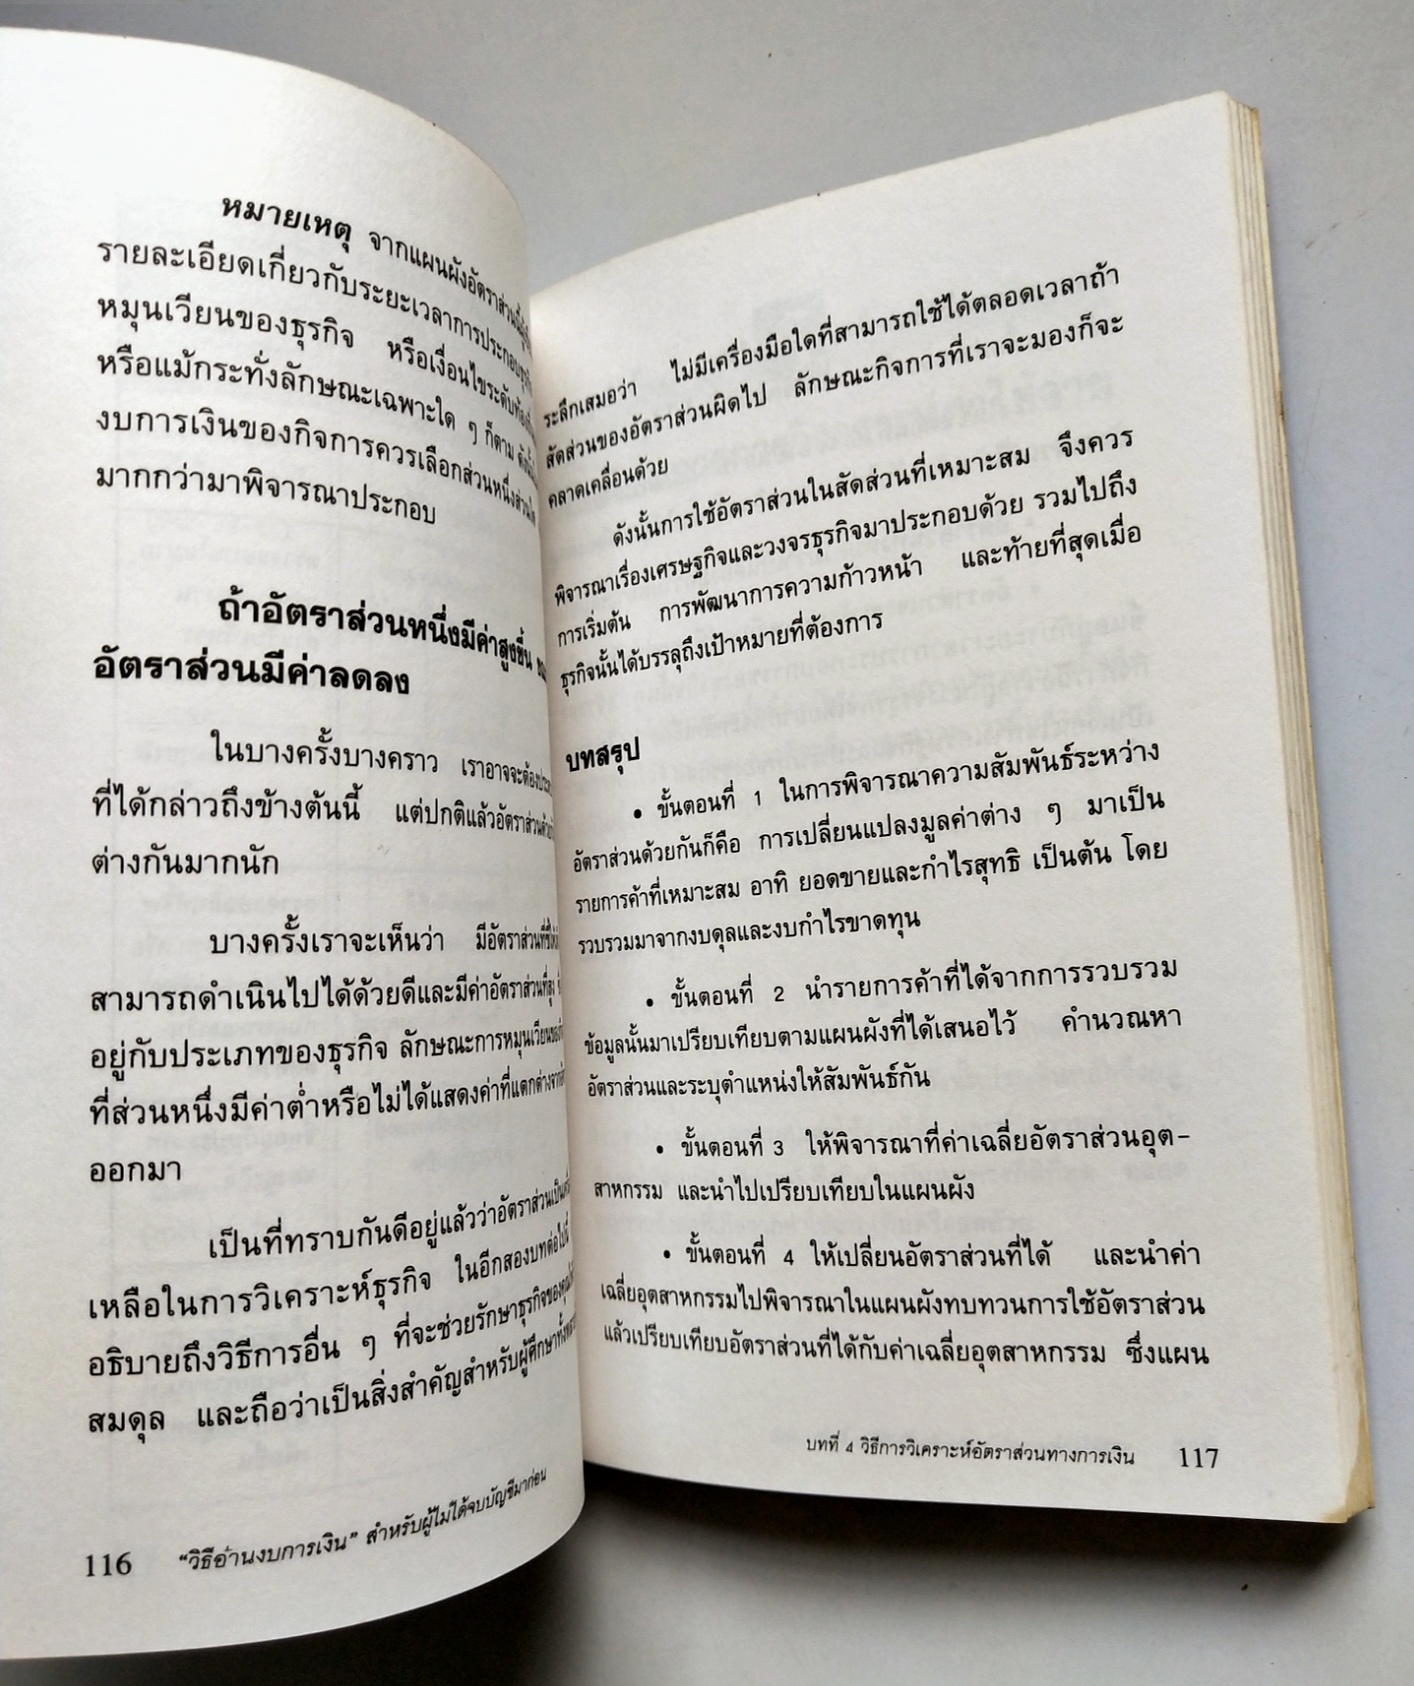 หมายเหตุ จากแผนผังอัตราส่วนนี้
รายละเอียดเกี่ยวกับระยะเวลาการประกอบธุรกิจ
หมุนเวียนของธุรกิจ หรือเงื่อนไขระดับท้องถิ่น
หรือแม้กระทั่งลักษณะเฉพาะใด ๆ ก็ตาม ดังนั้น
งบการเงินของกิจการควรเลือกส่วนหนึ่งส่วนใด
มากกว่ามาพิจารณาประกอบ
ถ้าอัตราส่วนหนึ่งมีค่าสูงขึ้น
อัตราส่วนมีค่าลดลง
ในบางครั้งบางคราว เราอาจจะต้อง
ที่ได้กล่าวถึงข้างต้นนี้ แต่ปกติแล้วอัตราส่วน
ต่างกันมากนัก
บางครั้งเราจะเห็นว่า มีอัตราส่วนที่ชี้
สามารถดำเนินไปได้ด้วยดีและมีค่าอัตราส่วนที่สูง
อยู่กับประเภทของธุรกิจ ลักษณะการหมุนเวียนของ
ที่ส่วนหนึ่งมีค่าต่ำหรือไม่ได้แสดงค่าที่แตกต่างจาก
ออกมา
เป็นที่ทราบกันดีอยู่แล้วว่าอัตราส่วนเป็น
เหลือในการวิเคราะห์ธุรกิจ ในอีกสองบทต่อไปนี้
อธิบายถึงวิธีการอื่น ๆ ที่จะช่วยรักษาธุรกิจของคุณ
สมดุล และถือว่าเป็นสิ่งสำคัญสำหรับผู้ศึกษา
116 “วิธีอ่านงบการเงิน” สำหรับผู้ไม่ได้จบบัญชีมาก่อน
ระลึกเสมอว่า ไม่มีเครื่องมือใดที่สามารถใช้ได้ตลอดเวลาถ้า
สัดส่วนของอัตราส่วนผิดไป ลักษณะกิจการที่เราจะมองก็จะ
คลาดเคลื่อนด้วย
ดังนั้นการใช้อัตราส่วนในสัดส่วนที่เหมาะสม จึงควร
พิจารณาเรื่องเศรษฐกิจและวงจรธุรกิจมาประกอบด้วย รวมไปถึง
การเริ่มต้น การพัฒนาการความก้าวหน้า และท้ายที่สุดเมื่อ
ธุรกิจนั้นได้บรรลุถึงเป้าหมายที่ต้องการ
บทสรุป
• ขั้นตอนที่ 1 ในการพิจารณาความสัมพันธ์ระหว่าง
อัตราส่วนด้วยกันก็คือ การเปลี่ยนแปลงมูลค่าต่าง ๆ มาเป็น
รายการค้าที่เหมาะสม อาทิ ยอดขายและกำไรสุทธิ เป็นต้น โดย
รวบรวมมาจากงบดุลและงบกำไรขาดทุน
• ขั้นตอนที่ 2 นำรายการค้าที่ได้จากการรวบรวม
ข้อมูลนั้นมาเปรียบเทียบตามแผนผังที่ได้เสนอไว้ คำนวณหา
อัตราส่วนและระบุตำแหน่งให้สัมพันธ์กัน
• ขั้นตอนที่ 3 ให้พิจารณาที่ค่าเฉลี่ยอัตราส่วนอุต-
สาหกรรม และนำไปเปรียบเทียบในแผนผัง
• ขั้นตอนที่ 4 ให้เปลี่ยนอัตราส่วนที่ได้ และนำค่า
เฉลี่ยอุตสาหกรรมไปพิจารณาในแผนผังทบทวนการใช้อัตราส่วน
แล้วเปรียบเทียบอัตราส่วนที่ได้กับค่าเฉลี่ยอุตสาหกรรม ซึ่งแผน
บทที่ 4 วิธีการวิเคราะห์อัตราส่วนทางการเงิน 117